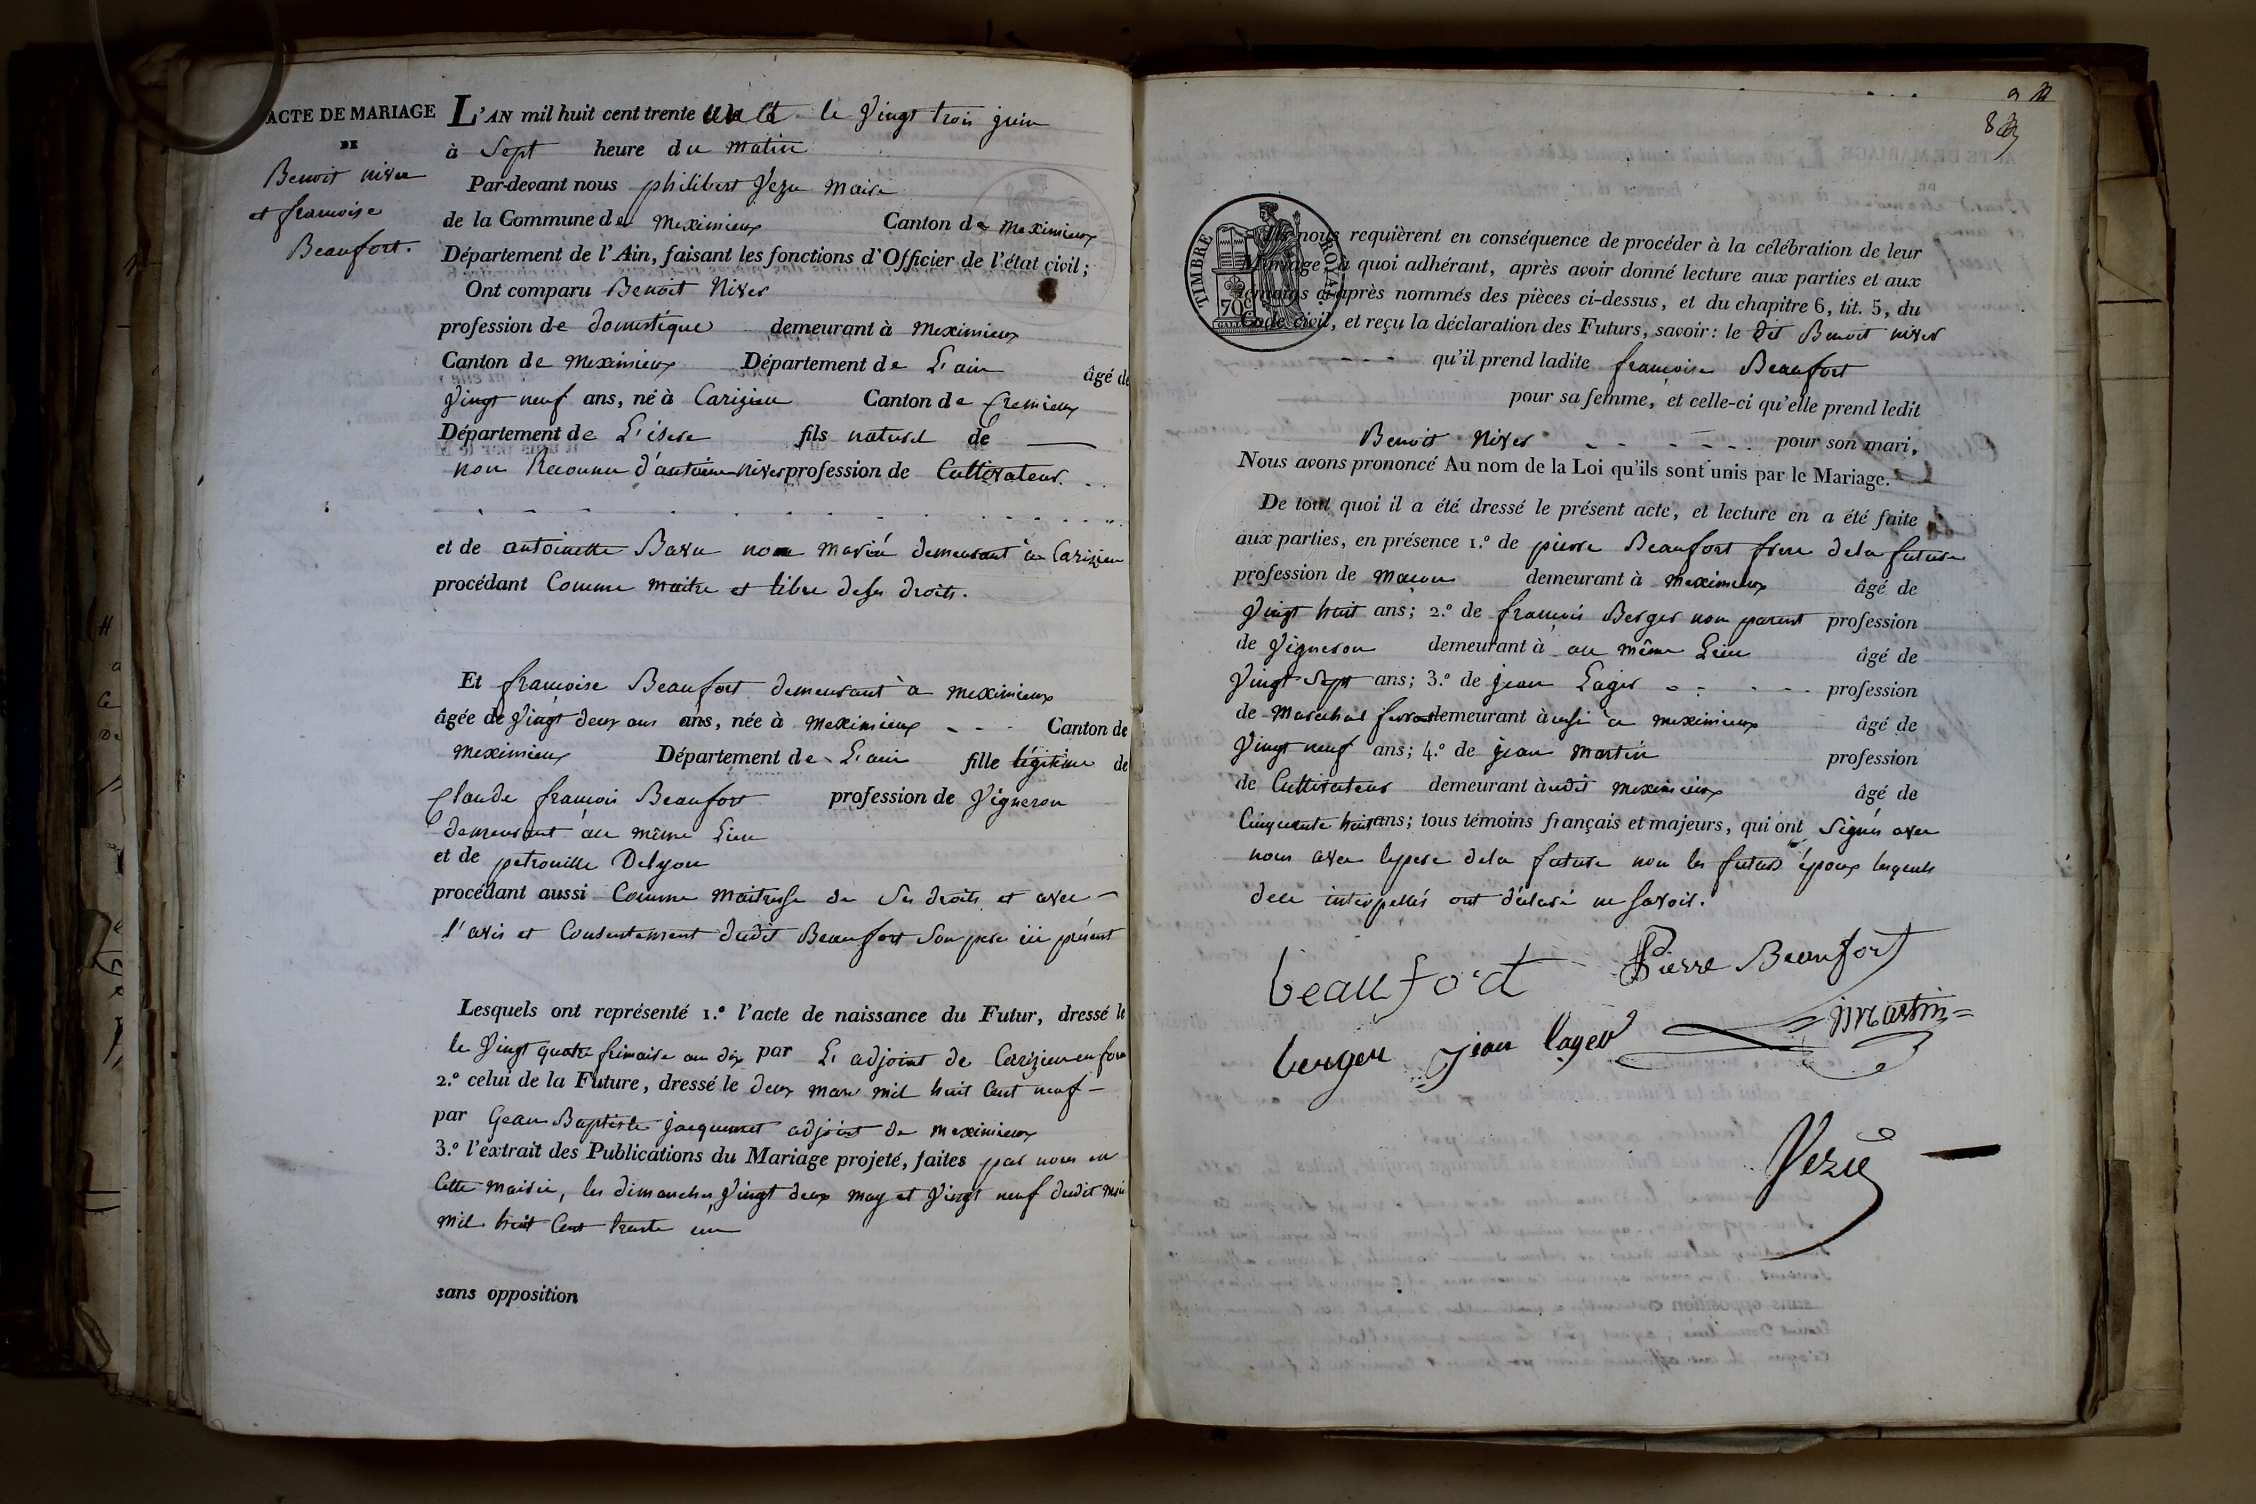 ACTE DE MARIAGE
DE
Benoit niver
et francoise
Beaufort.
L'AN mil huit cent trente un et le Vingt trois juin
à Sept heure du matin
Par-devant nous philibert Vezu maire
de la Commune de meximieux Canton de meximieux
Département de l'Ain, faisant les fonctions d'Officier de l'état civil;
Ont comparu Benoit Niver
profession de domestique demeurant à meximieux
Canton de meximieux Département de L'ain âgé de
Vingt neuf ans, né à Carizieu Canton de Cremieux
Département de L'isere fils naturel de
non Reconnu d'antoine niver profession de Cultivateur.
et de antoinette Bavu non marié demeurant à Carizieu
procédant Comme maitre et libre de ses droits.
Et francoise Beaufort demeurant à meximieux
âgée de Vingt deux ans ans, née à meximieux Canton de
meximieux Département de L'ain fille légitime de
Claude francois Beaufort profession de Vigneron
demeurant au même Lieu
et de petronille Delyon
procédant aussi Comme maitresse de Ses droits et avec
l'avis et Consentement dudit Beaufort Son pere ici présent
Lesquels ont représenté 1.º l'acte de naissance du Futur, dressé le
le Vingt quatre frimaire an dix par L'adjoint de Carizieu en forme
2.º celui de la Future, dressé le deux mars mil huit Cent neuf
par Gean Baptiste jacquemet adjoint de meximieux
3.º l'extrait des Publications du Mariage projeté, faites par nous en
Cette mairie, les dimanches Vingt deux may et Vingt neuf dudit mois
mil huit Cent trente un
sans opposition
TIMBRE ROYAL
70c
Ils nous requièrent en conséquence de procéder à la célébration de leur
Mariage à quoi adhérant, après avoir donné lecture aux parties et aux
témoins ci-après nommés des pièces ci-dessus, et du chapitre 6, tit. 5, du
Code civil, et reçu la déclaration des Futurs, savoir: le dit Benoit niver
qu'il prend ladite francoise Beaufort
pour sa femme, et celle-ci qu'elle prend ledit
Benoit Niver pour son mari.
Nous avons prononcé Au nom de la Loi qu'ils sont unis par le Mariage.
De tout quoi il a été dressé le présent acte, et lecture en a été faite
aux parties, en présence 1.º de pierre Beaufort frere de la future
profession de macon demeurant à meximieux âgé de
Vingt huit ans; 2.º de francois Berger non parent profession
de Vigneron demeurant à au même Lieu âgé de
Vingt Sept ans; 3.º de jean Lager profession
de marechal ferrant demeurant à aussi a meximieux âgé de
Vingt neuf ans; 4.º de jean martin profession
de Cultivateur demeurant à udit meximieux âgé de
Cinquante huit ans; tous témoins français et majeurs, qui ont Signés avec
nous avec le pere de la future non les futurs époux lesquels
de ce interpellés ont déclaré ne Savoir.
beaufort Pierre Beaufort
berger jean lager jMartin
Vezu